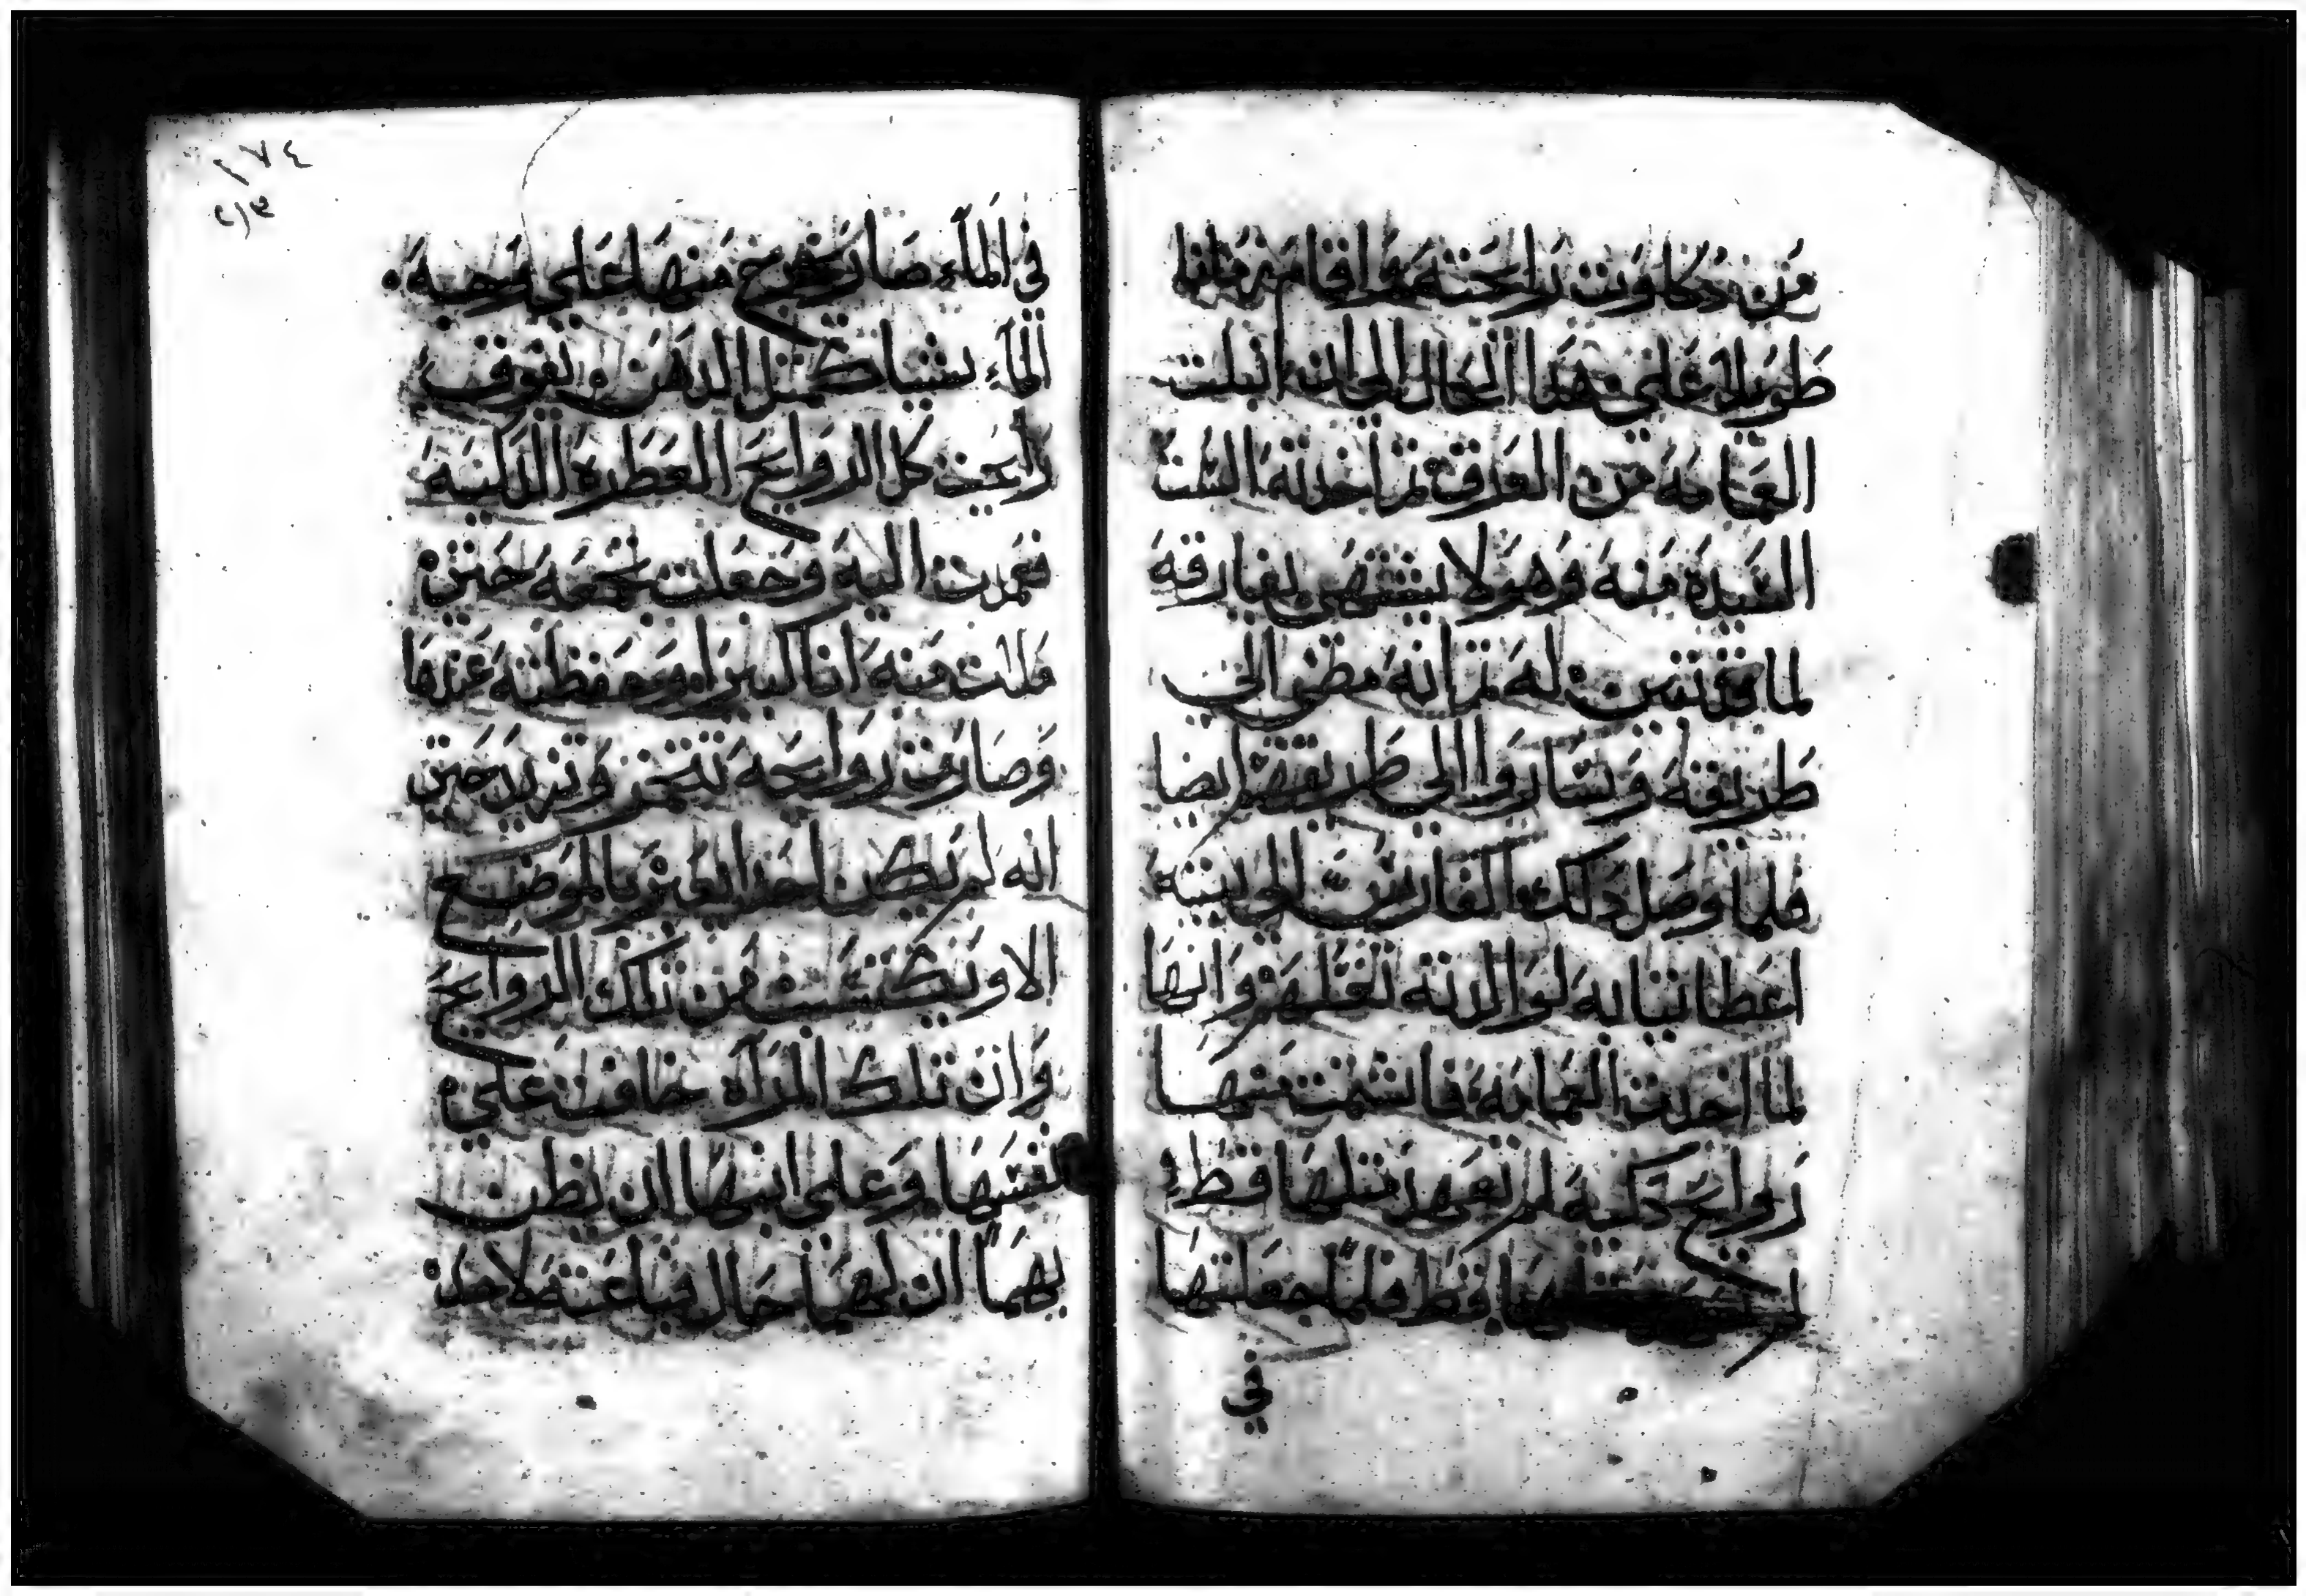 من دكاوت رايحته واقامو مليا
طويلا على هذا الحال الى ان ابتلت
العمامه من العرق ثم اخدته الست
السيده منه وهو لا يشتهى يفارقه
لما تتبين له ثم انه مضى الى
طريقته وساروا الى طريقهم ايضا
فلما وصل دلك الفارس الى بيته
اعطا تيابه لوالدته تغسلهم وانها
لما اخدت العمامه فاشتمت منها
روايح دكيه لم تعهد متلها قط
قط فلما جعلتها
في
١٧٤
في الماء صار يخرج منها على وجه
الماء شيا كمتل الدهن ويفوق
رايحت كل الروايح العطره الدكيه
فتمرت اليه وجعلت تجمعه حتى
ملت منه انا كبيرا وحفظته عندها
وصارت روايحه تتخمر وتزيد حتى
انه لم يكن احدا يعبر بالموضع
الا ويكتسب من تلك الروايح
وان تلك المراه خافت على
نفسها وعلى ابنها ان يظن
بهما ان لهما حال فباعته لاجل